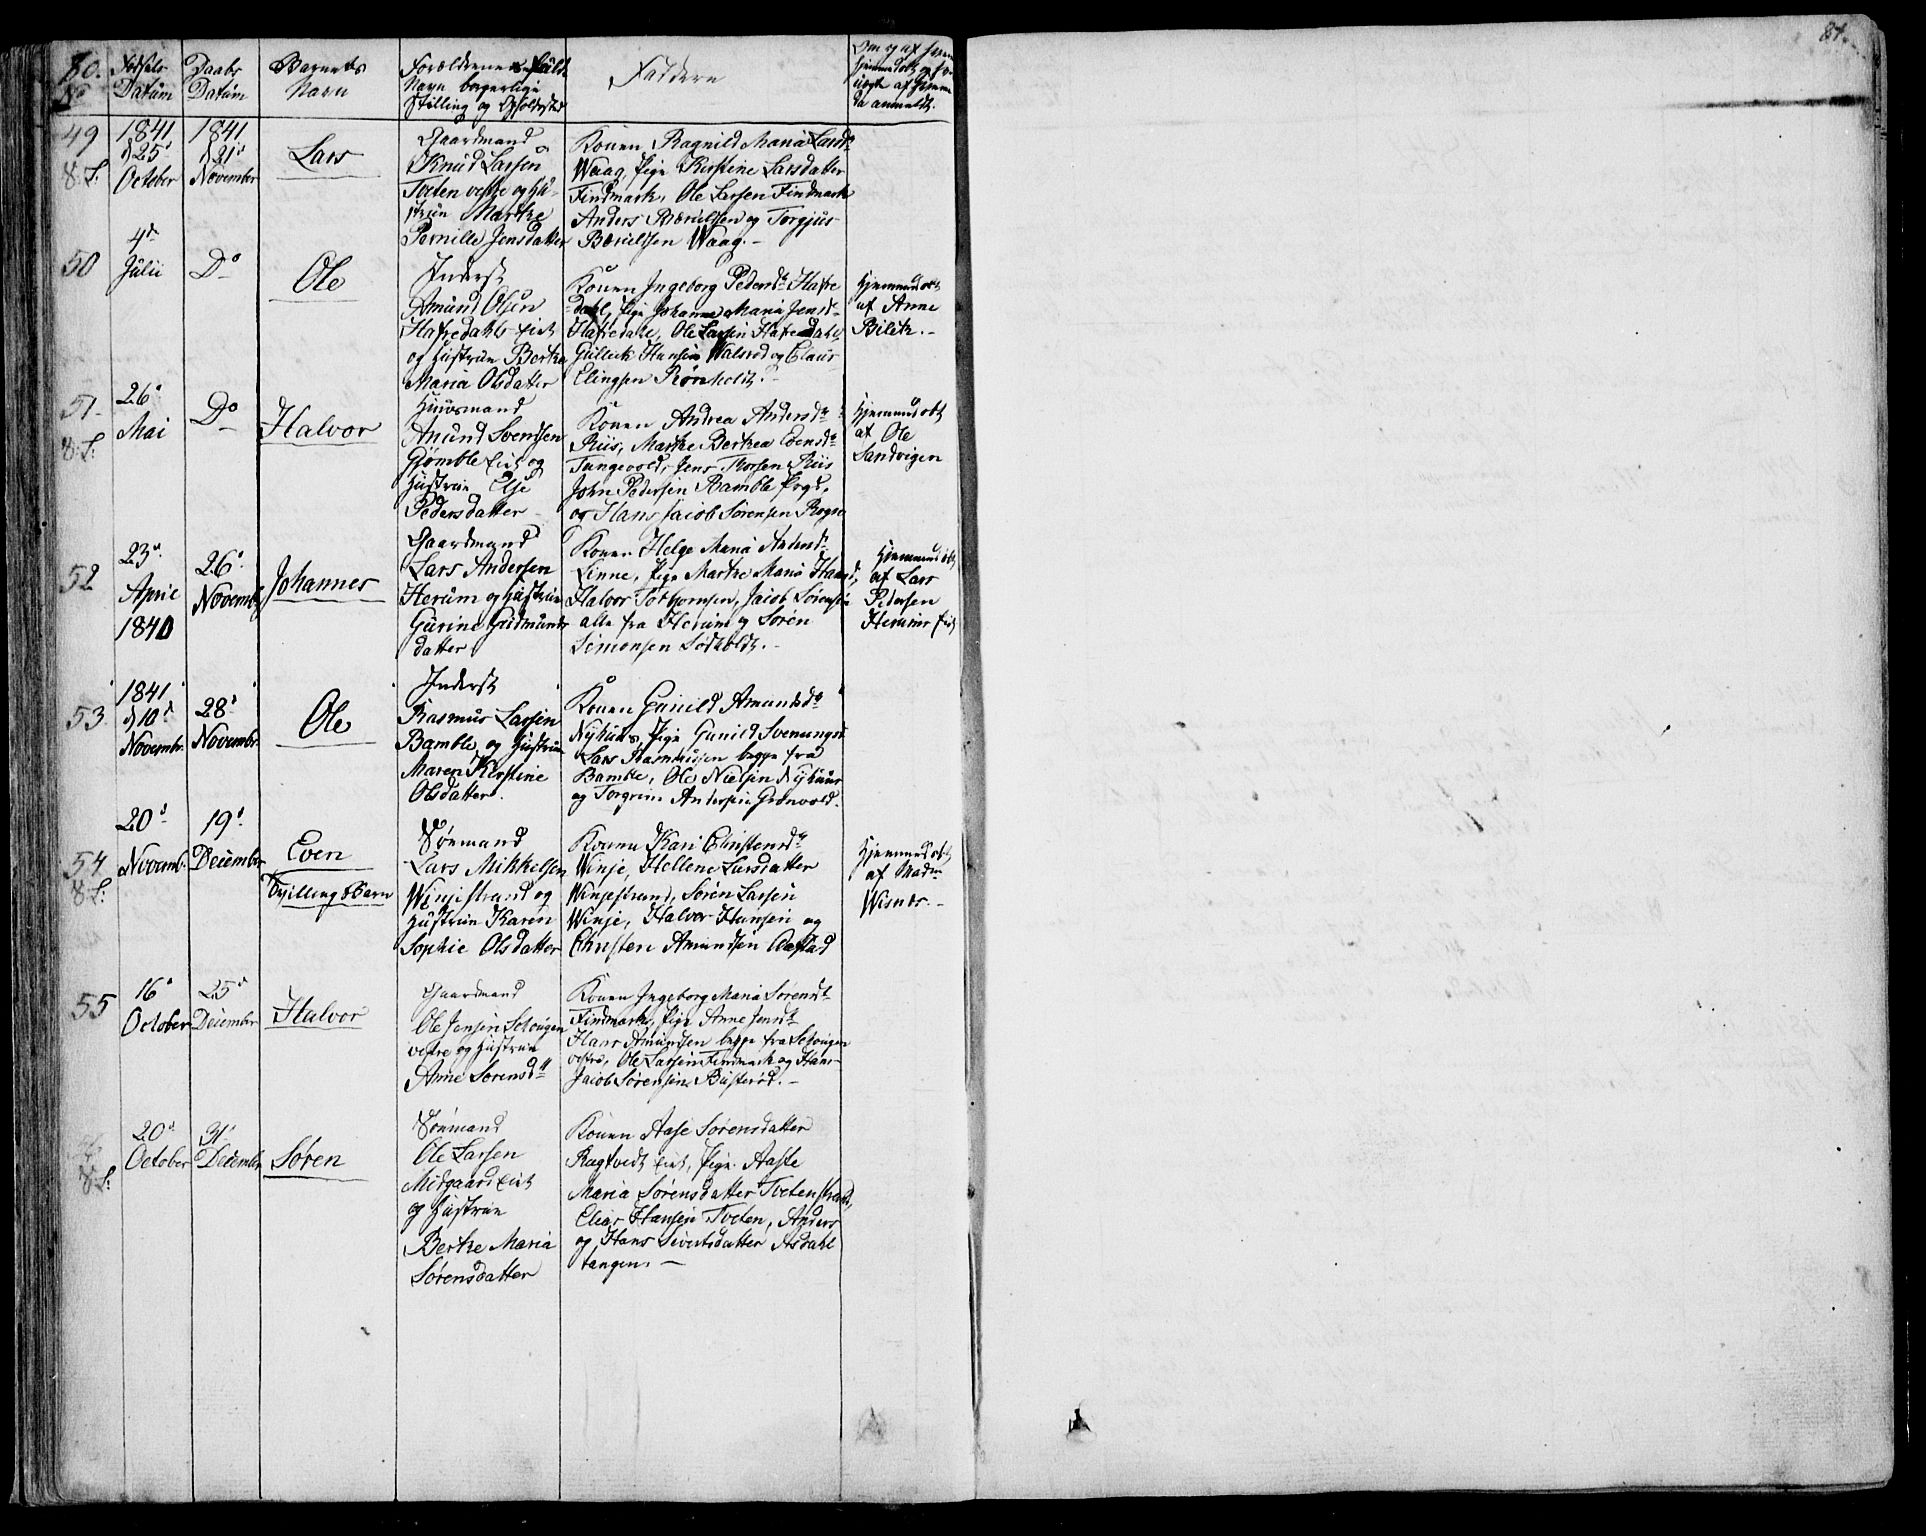 80.
No
Fødsels Datum
Daabs Datum
Barnets Navn
Forældrenes fulde
Navn borgerlige
Stilling og Opholdssted
Faddere
Om og af hvem
hjemmedøbt og
da anmeldt.
81.
49
8. L:
1841
d 25d
October
1841
d 21d
November
Lars
Gaardmand
Knud Larsen
Tveten vestre og Hu-
strue Marthe
Pernille Jensdatter
Konen Ragnild Maria Larsd.
Waag, Pige Kirstine Larsdatter
Findmark, Ole Larsen Findmark
Anders Bærulfsen og Torgjus
Bærulfsen Waag.-
50
4d
Julii
Do
Ole
Inderst
Amund Olsen
Hafredahls Eiet
og Hustrue Berthe
Maria Olsdatter
Konen Ingeborg Pedersd. Hafre
dahl, Pige Johanne Maria Jensd.
Hafredahl, Ole Larsen Hafredahl
Gulluk Hansen Walsrød og Claus
Elingsen Rønholdt.-
Hjemmedøbt
af Anne
Bilek.-
51
8. L:
26d
Mai
Do
Halvor
Huusmand
Anund Svendsen
Gjømble Eiet og
Hustrue Else
Pedersdatter
Konen Andrea Andersdr
Riis, Marthe Berthea Edensdr
Tangevold, Jens Thorsen Riis
John Pedersen Bamble Prgd.
og Hans Jacob Sørensen Rogn
Hjemmedøbt
af Ole
Sandvigen
52
23d
April
1840
26d
Novembr
Johannes
Gaardmand
Lars Andersen
Herum og Hustrue
Gurine Gudmunds
datter
Konen Helge Maria Andersd.
Linne, Pige Marthe Maria Hansd,
Halvor Torbjornsen, Jacob Sørensen
alle fra Herum og Søren
Simonsen Lødholdt.-
Hjemmedøbt
af Lars
Pedersen
Herum Eiet
53
1841
d 10d
Novembr.
28d
Novembr.
Ole
Inderst
Rasmus Larsen
Bamble og Hustrue
Maren Kirstine
Olsdatter.
Konen Gunild Amundsdr
Nyhuus, Pige Gunild Svenungsd
Lars Rasmussen begge fra
Bamble, Ole Nielsen Nyhuus
og Torgrim Andersen Grønvold.
54
8 L:
20d
Novemb:
19d
December
Even
Tvilling Barn
Sømand
Lars Mikkelsen
Winjestrand og
Hustrue Karen
Sophie Olsdatter
Konen Kari Christensdr
Winje, Hellene Larsdatter
Winjestrand, Søren Larsen
Winje, Halvor Hansen og
Christen Amundsen Aastad
Hjemmedøbt
af Madm
Wisnes.-
55
16d
October
25d
December
Halvor
Gaardmand
Ole Jensen Solvigen
vestre og Hustrue
Anne Sørensdr
Konen Ingeborg Maria Sørensdr
Findmark, Pige Anne Jensdr
Hans Amundsen begge fra Solvigen
vestre, Ole Larsen Findmark og Hans
Jacob Sørensen Busterød.-
8 L:
20d
October
31d
December
Søren
Sømand
Ole Larsen
Midgaard Eiet
og Hustrue
Berthe Maria
Sørensdatter
Konen Aase Sørensdatter
Ragtvedt Eiet, Pige Aaste
Maria Sørensdatter Tvetenstrand,
Elias Hansen Tveten, Anders
og Hans Sivertsdatter Asdahl
tangen.-